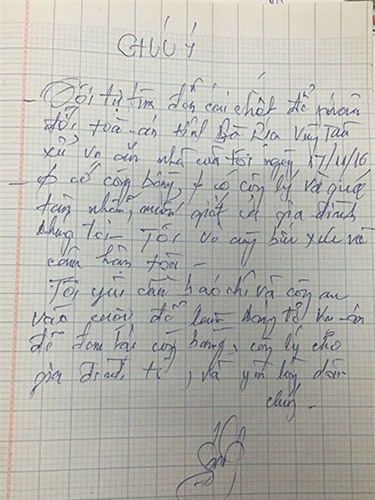 CHÚ Ý
- Tôi tự tìm đến cái chết để phản
đối toà-án tỉnh Bà Rịa Vũng Tàu
xử vụ án nhà của tôi ngày 17/11/16
- có công bằng, có công lý và quá
tàn nhẫn, muốn giết cả gia đình
chúng tôi - Tôi vô cùng bức xúc và
căm hận tòa -
Tôi yêu cầu báo chí và công an
vào cuộc để làm sáng tỏ vụ-án
để đem lại công bằng, công lý cho
gia đình tôi, và yên lòng dân
chúng -